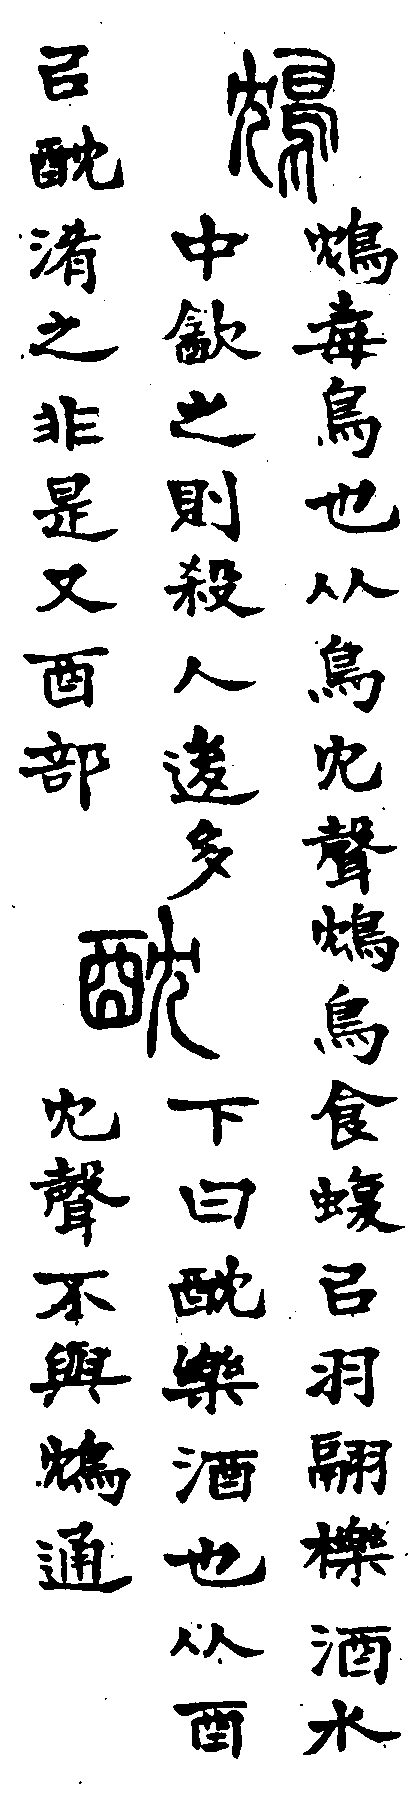 鴆
鴆毒鳥也从鳥冘聲鴆鳥食蝮㠯羽翮櫟酒水
中㱃之則殺人後多
㠯酖淆之非是又酉部
酖
下曰酖樂酒也从酉
冘聲不與鴆通